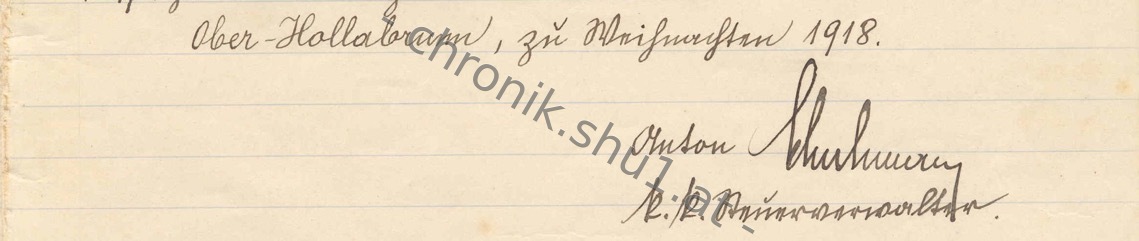 Ober-Hollabrunn, zu Weihnachten 1918.
- chronik.shu1.at -
Anton
k. k. Steuerverwalter.